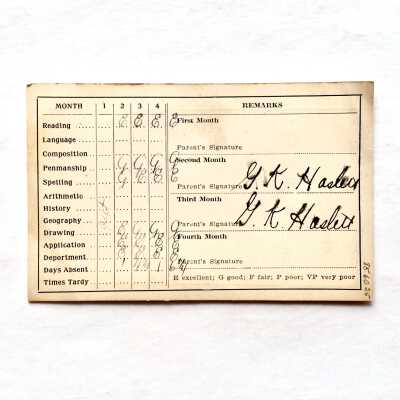 MONTH 1 2 3 4 REMARKS
Reading E. E. E. E First Month
Language
Parent's Signature
Composition
Penmanship G G G G Second Month
Spelling G E E E
Parent's Signature G. K. Haslett
Arithmetic
Third Month
History
Geography
Parent's Signature G K Haslett
Drawing
Fourth Month
Application
Deportment
Parent's Signature
Days Absent
E excellent; G good; F fair; P poor; VP very poor
Times Tardy